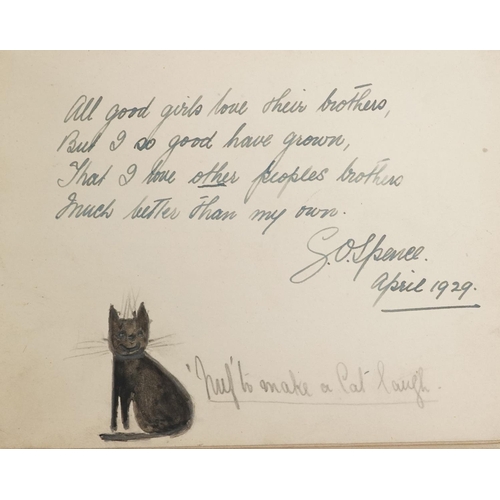 All good girls love their brothers,
But I so good have grown,
That I love other peoples brothers
Much better than my own.
G.O. Spence.
April 1929.
'Nuf' to make a Cat laugh.